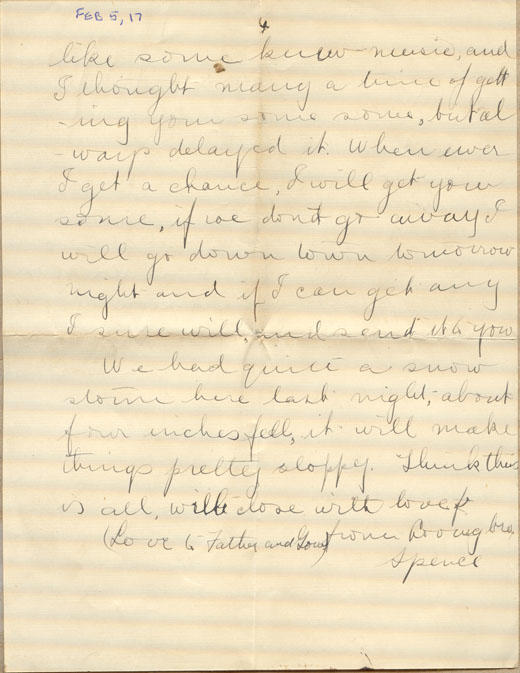 FEB 5, 17
4
like some knew music, and
I thought many a time of gett
-ing you some some, but al
-ways delayed it. When ever
I get a chance, I will get you
some, if we don't go away I
will go down town tomorrow
night and if I can get any
I sure will, and send it to you
We had quite a snow
storm here last night, about
four inches fell, it will make
things pretty sloppy. Think this
is all, will close with love
from Loving bro.
(Love to Father and
Spence